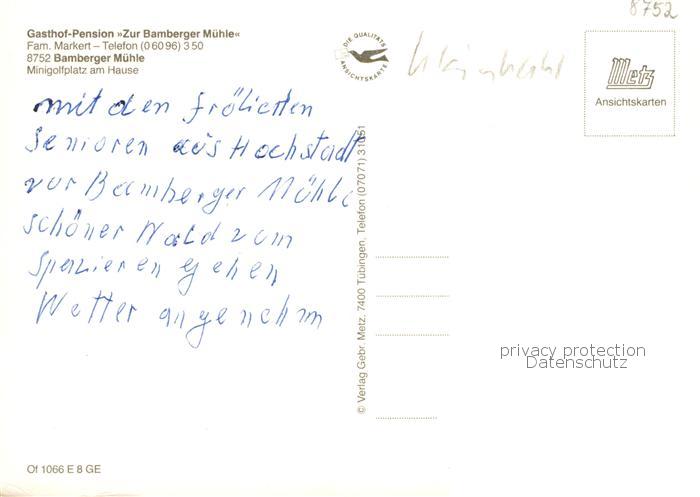 8752
Gasthof-Pension »Zur Bamberger Mühle«
Fam. Markert – Telefon (0 60 96) 3 50
8752 Bamberger Mühle
Minigolfplatz am Hause
DIE QUALITÄTS
ANSICHTSKARTE
Metz
Ansichtskarten
mit den frölichen
Senioren aus Hochstadt
zur Bamberger Mühle
schöner Wald zum
Spazieren gehen
Wetter angenehm
© Verlag Gebr. Metz, 7400 Tübingen, Telefon (07071) 31051
privacy protection
Datenschutz
Of 1066 E 8 GE